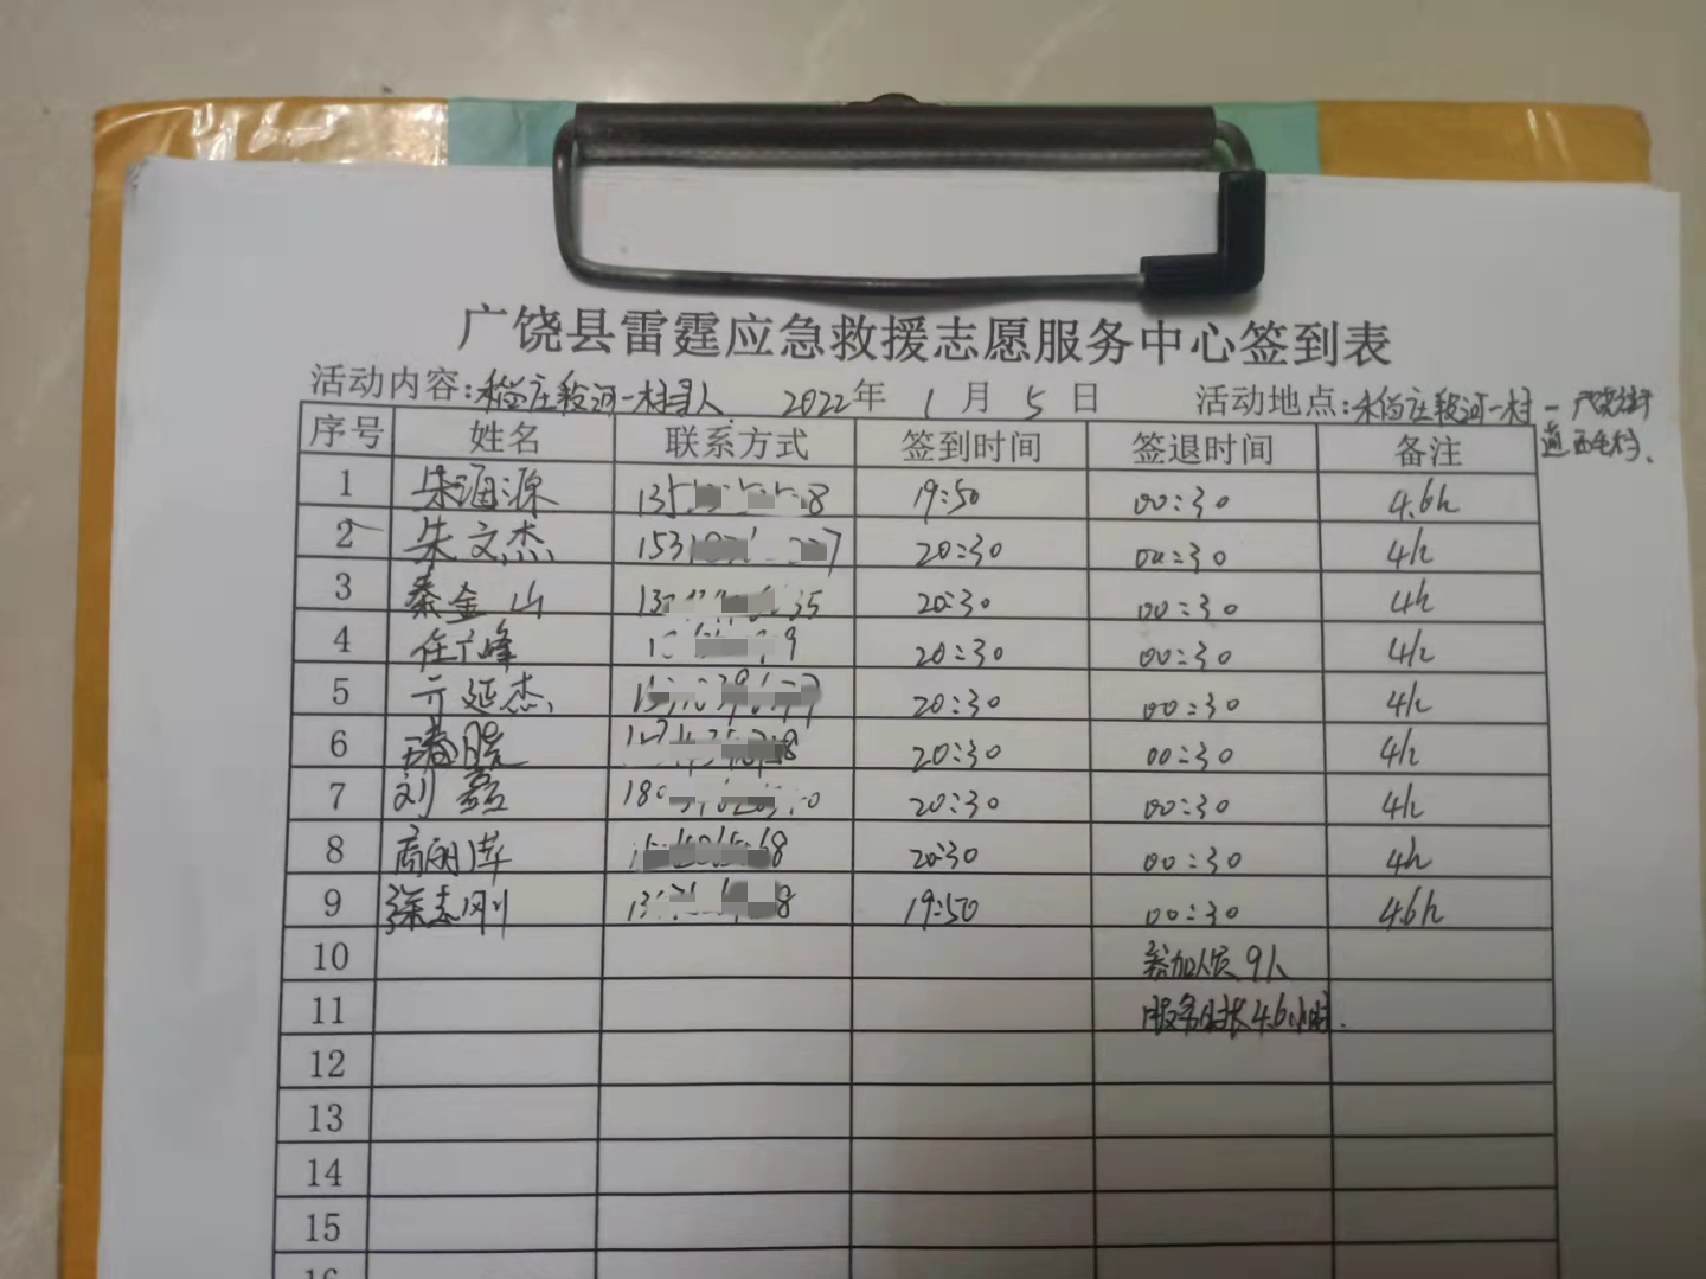 广饶县雷霆应急救援志愿服务中心签到表
活动内容：庄段河一村寻人 2022年 1 月 5 日 活动地点：庄段河一村 - 广饶街
道西毛村、
序号 姓名 联系方式 签到时间 签退时间 备注
1 朱海源 135 8 19:50 00:30 4.6h
2 朱文杰 1531 7 20:30 00:30 4h
3 秦金山 13 35 20:30 00:30 4h
4 任广峰 1 9 20:30 00:30 4h
5 亓延杰 15 77 20:30 00:30 4h
6 晓 1 8 20:30 00:30 4h
7 刘磊 180 0 20:30 00:30 4h
8 高 1 68 20:30 00:30 4h
9 徐志刚 13 8 19:50 00:30 4.6h
10 参加人员 9人
11 服务时长 4.6小时.
12
13
14
15